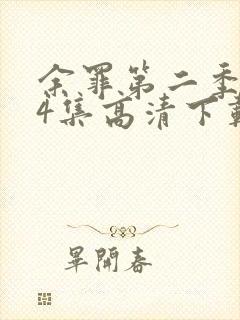 余罪第二季
4集高清下载
畢開春